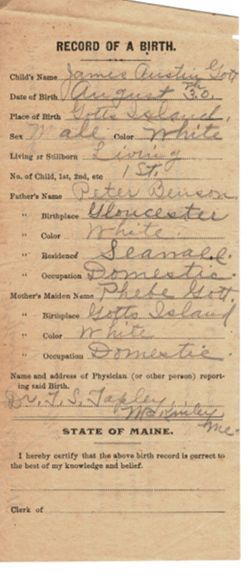 RECORD OF A BIRTH.
Child's Name James Austin Gott
Date of Birth August 30.
Place of Birth Gotts Island,
Sex Male Color White
Living or Stillborn Living
No. of Child, 1st, 2nd, etc 1 St.
Father's Name Peter Benson
" Birthplace Gloucester
" Color White.
" Residence Seawall
" Occupation Domestic.
Mother's Maiden Name Phebe Gott.
" Birthplace Gotts Island
" Color White
" Occupation Domestic
Name and address of Physician (or other person) report-
ing said Birth.
Dr. T. S. Tapley,
McKinley
Me.
STATE OF MAINE.
I hereby certify that the above birth record is correct to
the best of my knowledge and belief.
Clerk of